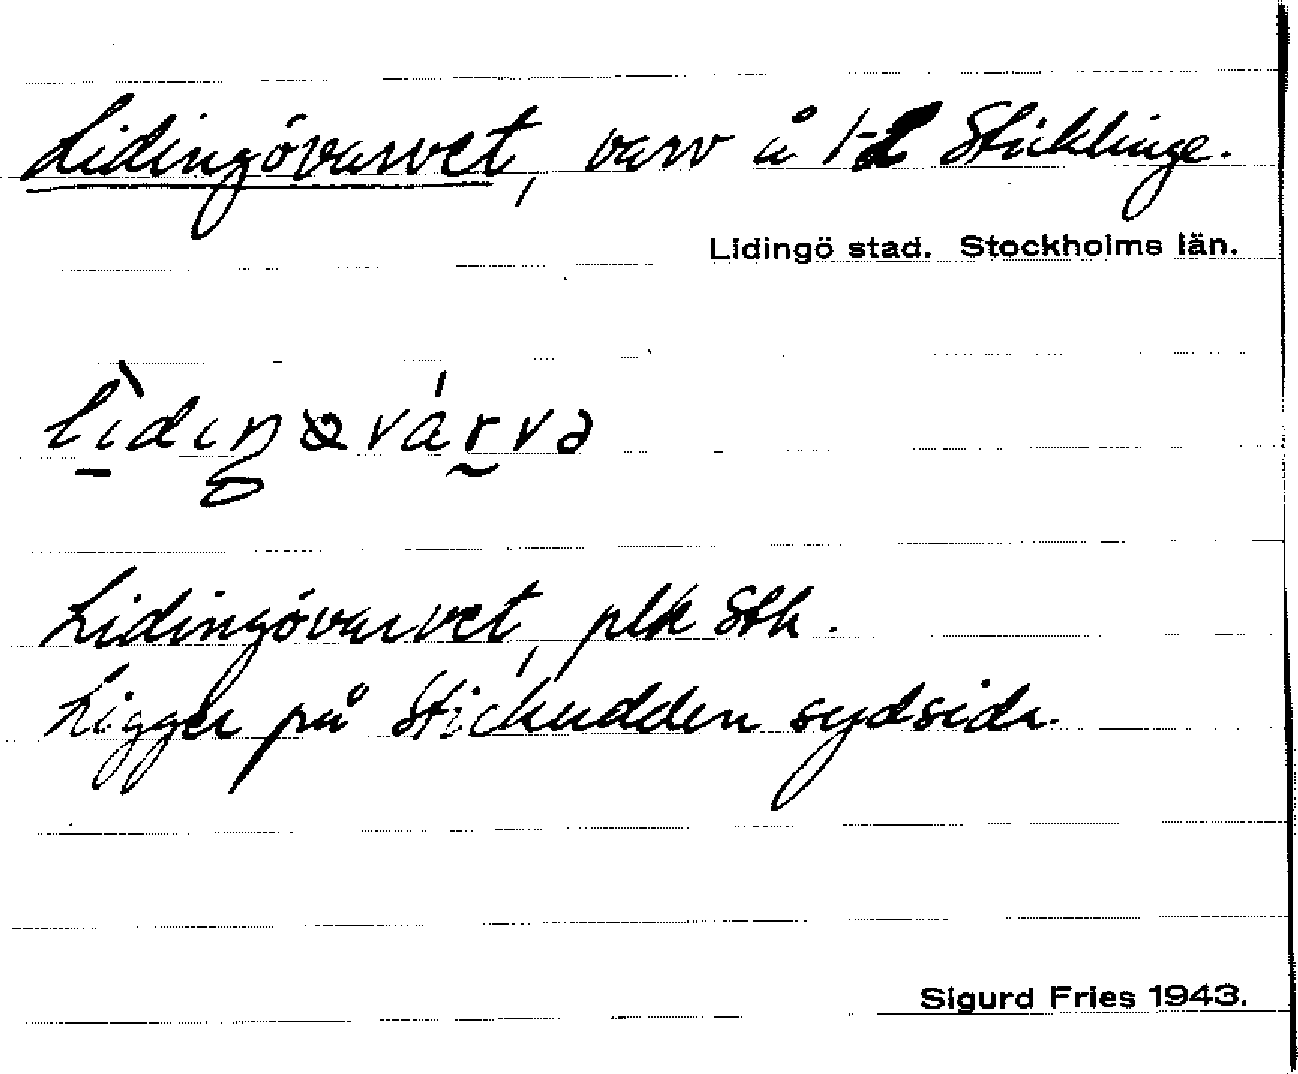 Lidingövarvet, varv å 1-2 Sticklinge.
Lidingö stad. Stockholms län.
Lidingövarvet, plk Sth.
Ligger på Stickudden sydsida.
Sigurd Fries 1943.